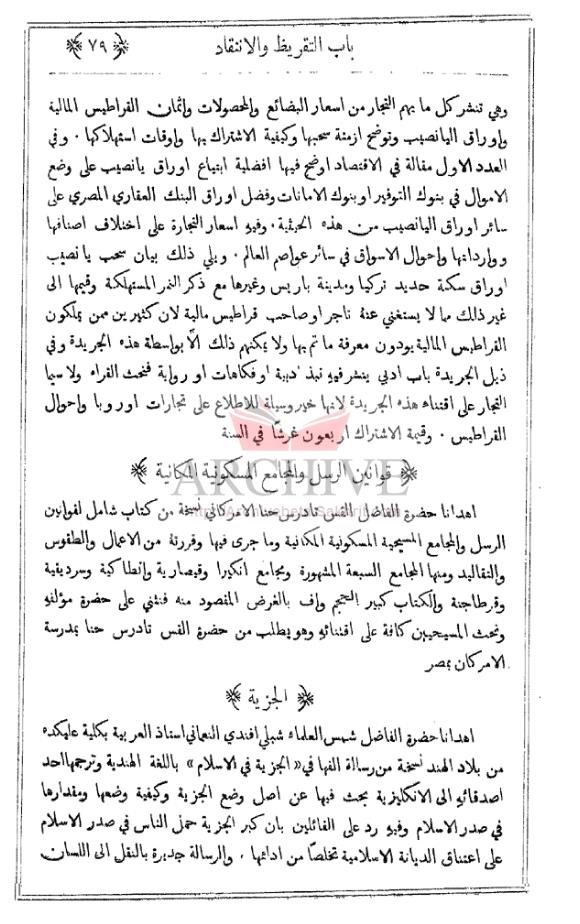 باب التقريظ والانتقاد
﴿ ٧٩ ﴾
وهي تنشر كل ما يهم التجار من اسعار البضائع والمحصولات واثمان القراطيس المالية
واوراق اليانصيب وتوضح ازمنة سحبها وكيفية الاشتراك بها واوقات استهلاكها . وفي
العدد الاول مقالة في الاقتصاد اوضح فيها افضلية ابتياع اوراق يانصيب على وضع
الاموال في بنوك التوفير او بنوك الامانات وفضل اوراق البنك العقاري المصري على
سائر اوراق اليانصيب من هذه الحيثية . وفيه اسعار التجارة على اختلاف اصنافها
ووارداتها واحوال الاسواق في سائر عواصم العالم . ويلي ذلك بيان سحب يانصيب
اوراق سكة حديد تركيا ومدينة باريس وغيرها مع ذكر النمر المستهلكة وقيمها الى
غير ذلك مما لا يستغني عنه تاجر او صاحب قراطيس مالية لان كثيرين ممن يملكون
القراطيس المالية يودون معرفة ما تم بها ولا يمكنهم ذلك الا بواسطة هذه الجريدة وفي
ذيل الجريدة باب ادبي ينشر فيه نبذ ادبية او فكاهات او رواية فنحث القراء ولا سيما
التجار على اقتناء هذه الجريدة لانها خير وسيلة للاطلاع على تجارات اوروبا واحوال
القراطيس . وقيمة الاشتراك اربعون غرشًا في السنة
﴿ قوانين الرسل والمجامع المسكونية المكانية ﴾
ARCHIVE
اهدانا حضرة الفاضل القس تادرس حنا الامركاني نسخة من كتاب شامل لقوانين
الرسل والمجامع المسيحية المسكونية المكانية وما جرى فيها وقررته من الاعمال والطقوس
والتقاليد ومنها المجامع السبعة المشهورة ومجامع انكيرا وقيصارية وانطاكية وسرديقية
وقرطاجنة والكتاب كبير الحجم واف بالغرض المقصود منه فنثني على حضرة مؤلفه
ونحث المسيحيين كافة على اقتنائه وهو يطلب من حضرة القس تادرس حنا بمدرسة
الامركان بمصر
﴿ الجزية ﴾
اهدانا حضرة الفاضل شمس العلماء شبلي افندي النعماني استاذ العربية بكلية عليكده
من بلاد الهند نسخة من رسالة الفها في « الجزية في الاسلام » باللغة الهندية وترجمها احد
اصدقائه الى الانكليزية بحث فيها عن اصل وضع الجزية وكيفية وضعها ومقدارها
في صدر الاسلام وفيه رد على القائلين بان كبر الجزية حمل الناس في صدر الاسلام
على اعتناق الديانة الاسلامية تخلصًا من ادائها . والرسالة جديرة بالنقل الى اللسان